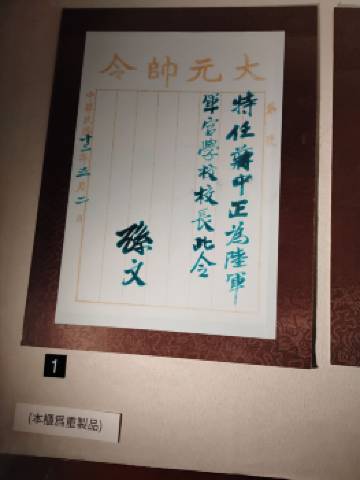 大元帥令
特任蔣中正為陸軍
軍官學校校長此令
孫文
中華民國十三年五月二日
1
(本櫃爲重製品)